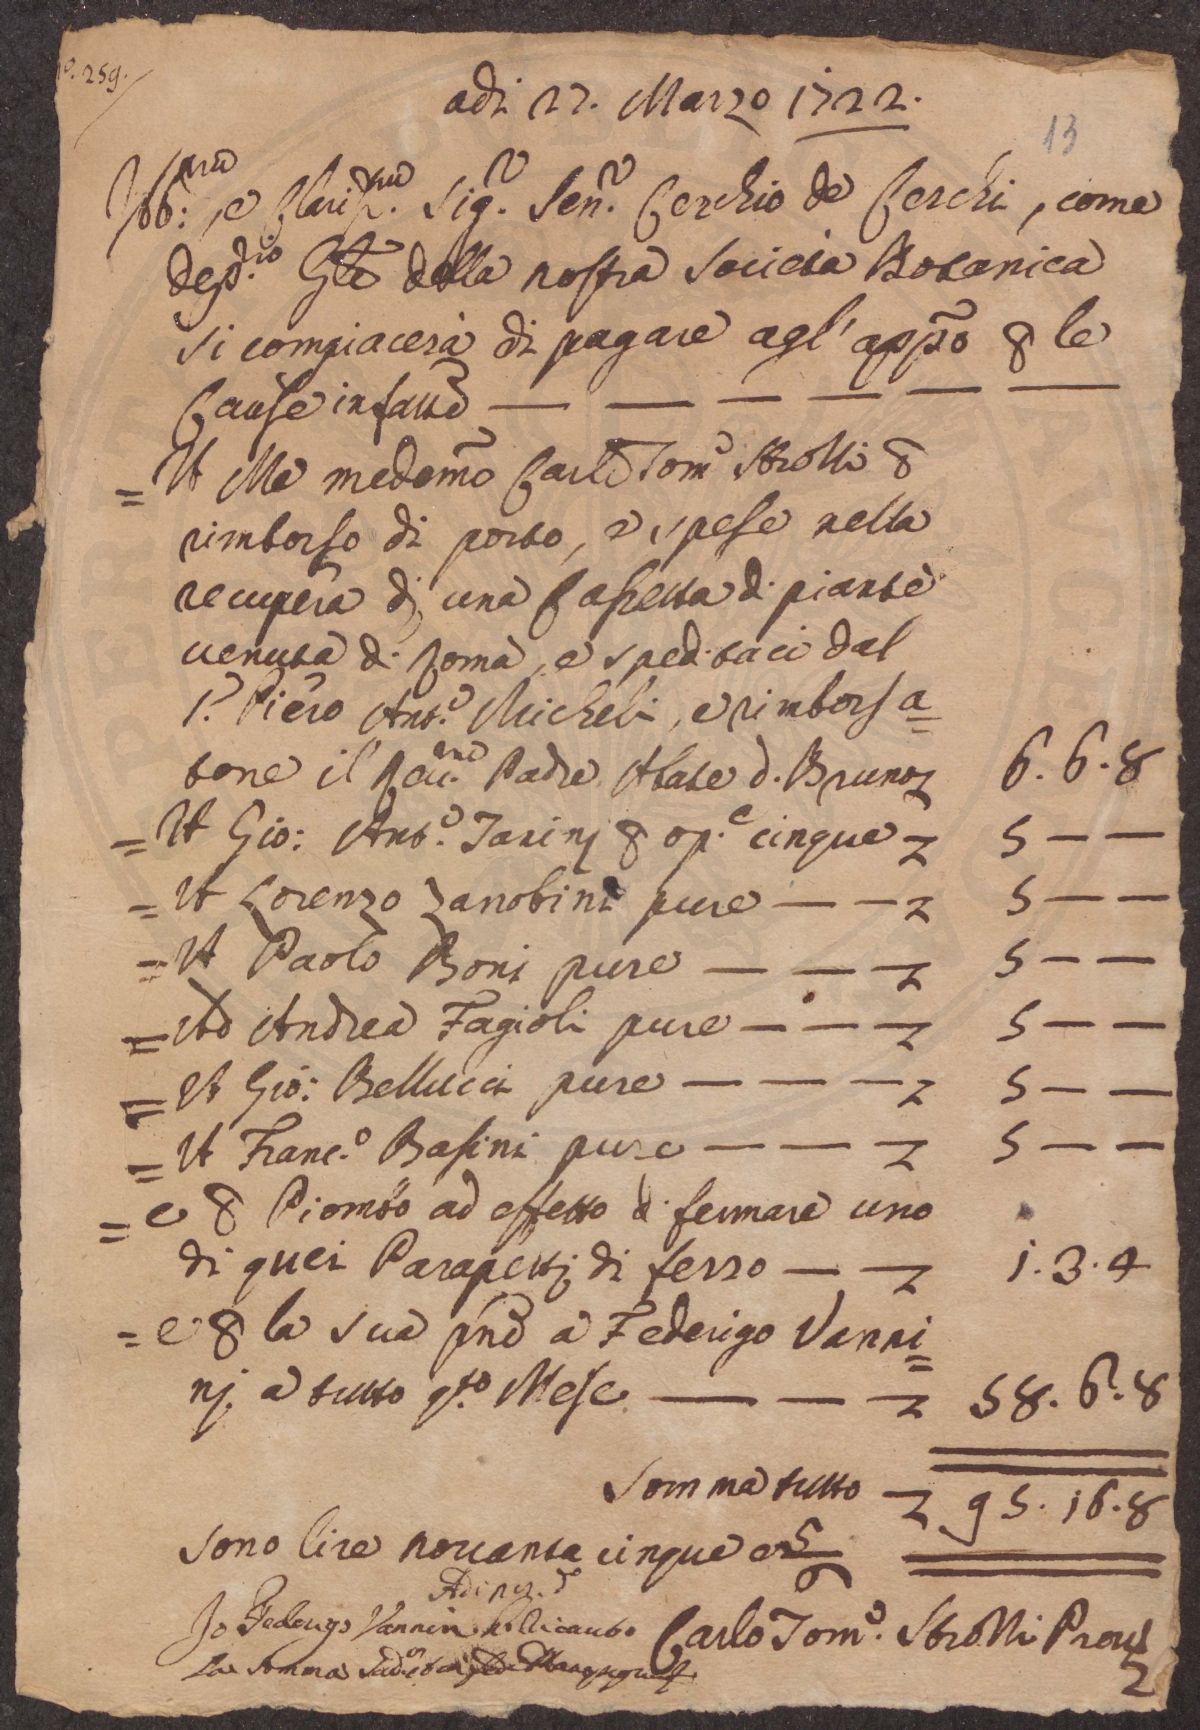 o. 259.
adi 27. Marzo 1722.
13
Ill:mo, e Clariss.mo Sig.r Sen.r Cerchio de Cerchi, come
dep.rio Gle della nostra Società Botanica
si compiacerà di pagare agl' appo p le
Cause infatto — — — — — —
= A Me medemo Carlo Tomo Strozzi p
rimborso di porto, e spese nella
recupera di una Cassetta di piante
venuta di Roma, e speditaci dal
S.r Piero Ant.o Micheli, e rimborsa=
tone il Reu.mo Padre Abate d. Bruno 6. 6. 8
= A Gio: Ant.o Tarinj p op.e cinque 5 — —
= A Lorenzo Zanobini pure — — 5 — —
= A Paolo Boni pure — — — 5 — —
= Ad Andrea Fagioli pure — — — 5 — —
= A Gio: Bellucci pure — — — 5 — —
= A Franc.o Basini pure — — — 5 — —
= e p Piombo ad effetto di fermare uno
di quei Parapetti di ferro — — 1. 3. 4
= e p la sua pno a Federigo Vanni=
nj. a tutto q.to Mese — — — 58. 6. 8
Somma tutto 95. 16. 8
sono lire novanta cinque
Adi
Io Federigo Vannini
La somma
Carlo Tom.o Strozzi Prov